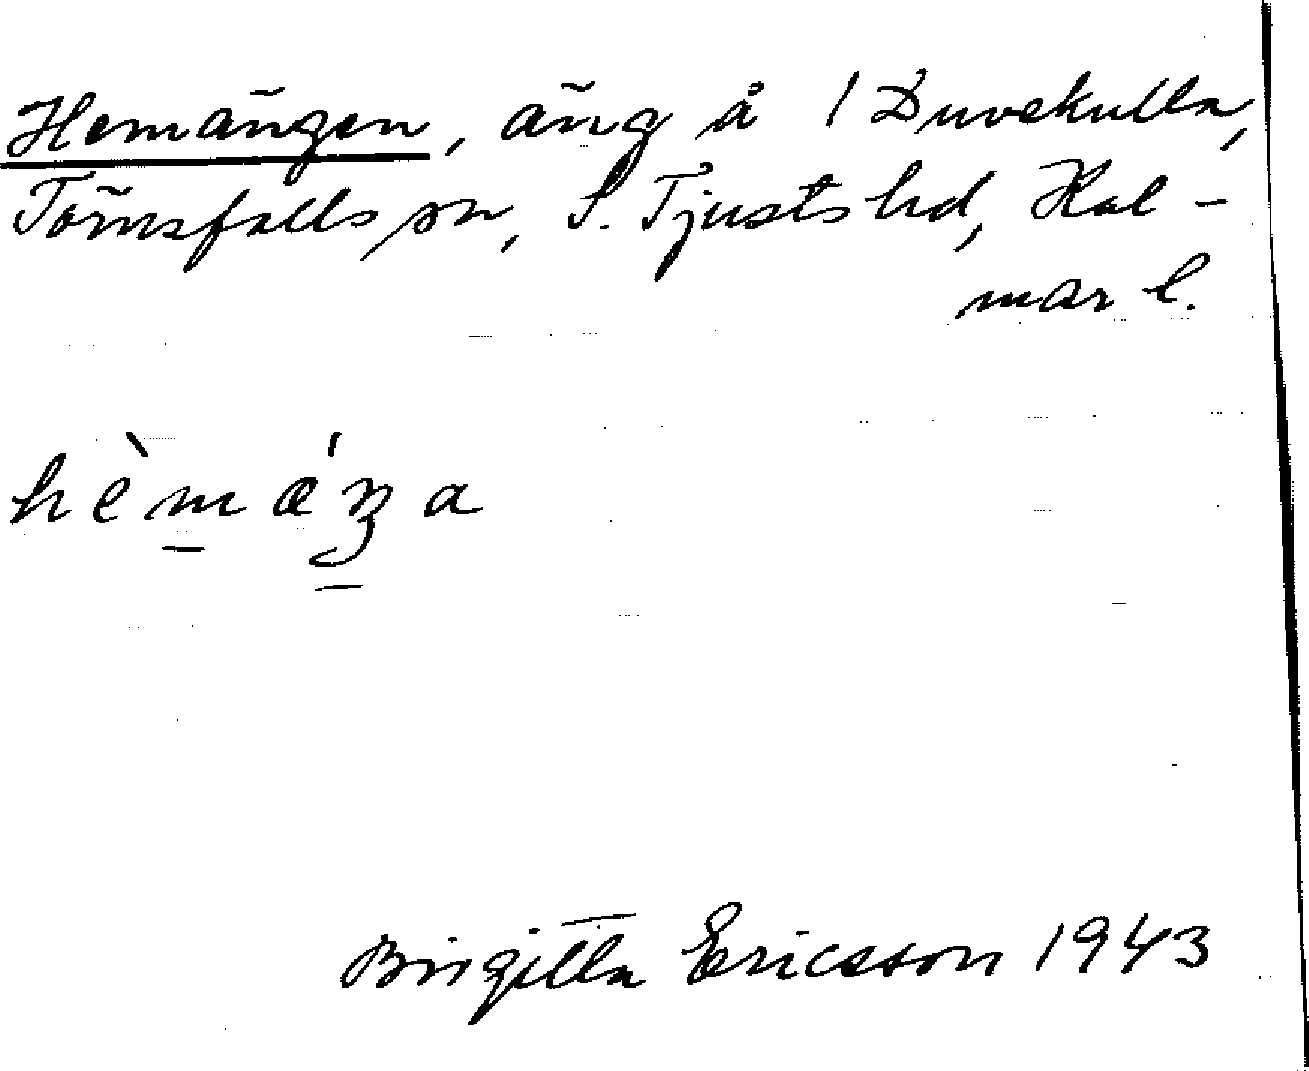 Hemängen, äng å 1 Duvekulla,
Törnsfalls sn, S. Tjusts hd, Kal-
mar l.
hèmǽŋa
Birgitta Ericsson 1943